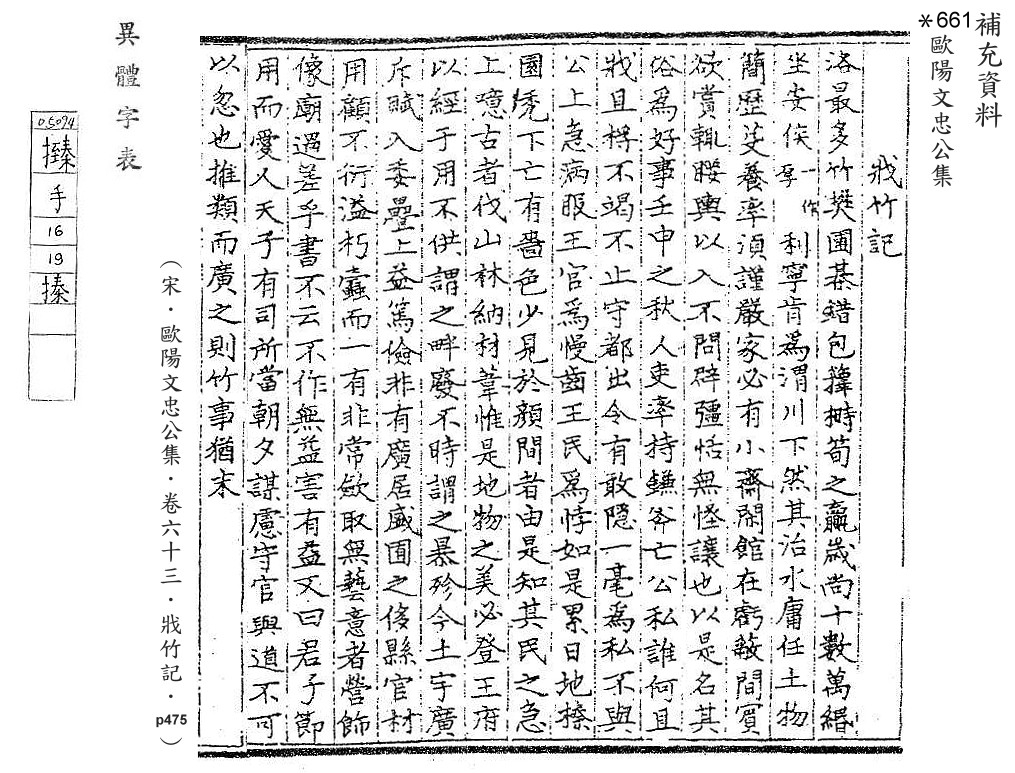 補充資料
*661
歐陽文忠公集
戕竹記
洛最多竹樊圃棊錯包籜榯筍之贏歲尚十數萬緡
坐安侯一作孕利寧肯爲渭川下然其治水庸任土物
簡歷芟養率須謹嚴家必有小齋閑館在虧蔽間賓
欲賞輒腰輿以入不問辟彊恬無怪讓也以是名其
俗爲好事壬申之秋人吏率持鎌斧亡公私誰何且
戕且桴不竭不止守都出令有敢隱一毫爲私不與
公上急病服王官爲慢齒王民爲悖如是累日地榛
園禿下亡有嗇色少見於顏間者由是知其民之急
上噫古者伐山林納材葦惟是地物之美必登王府
以經于用不供謂之畔廢不時謂之暴殄今土宇廣
斥賦入委疊上益篤儉非有廣居盛囿之侈縣官材
用顧不衍溢朽蠹而一有非常斂取無藝意者營飾
像廟過差乎書不云不作無益害有益又曰君子節
用而愛人天子有司所當朝夕謀慮守官與道不可
以忽也推類而廣之則竹事猶末
異體字表
(宋．歐陽文忠公集．卷六十三．戕竹記．
p475
)
05094
手
16
19
搸